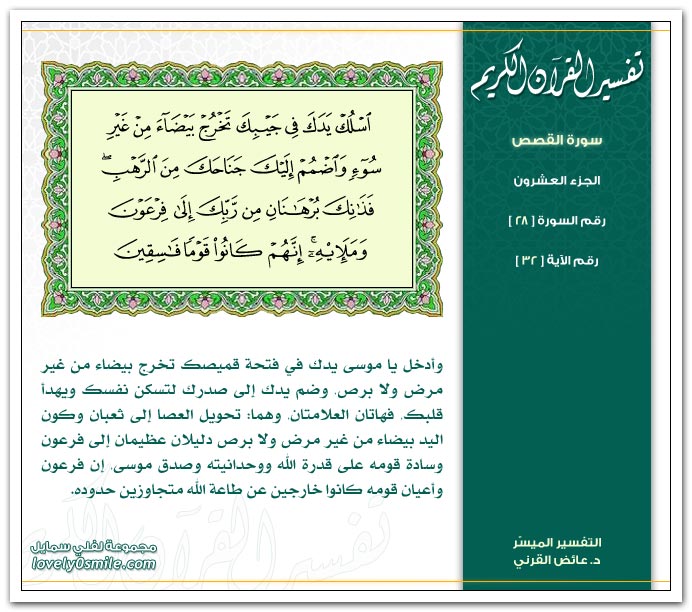 تفسير القرآن الكريم
سورة القصص
الجزء العشرون
رقم السورة [ ٢٨ ]
رقم الآية [ ٣٢ ]
ٱسْلُكْ يَدَكَ فِى جَيْبِكَ تَخْرُجْ بَيْضَآءَ مِنْ غَيْرِ
سُوٓءٍ وَٱضْمُمْ إِلَيْكَ جَنَاحَكَ مِنَ ٱلرَّهْبِ ۖ
فَذَٰنِكَ بُرْهَـٰنَانِ مِن رَّبِّكَ إِلَىٰ فِرْعَوْنَ
وَمَلَإِي۟هِۦٓ ۚ إِنَّهُمْ كَانُوا۟ قَوْمًا فَـٰسِقِينَ
وأدخل يا موسى يدك في فتحة قميصك تخرج بيضاء من غير
مرض ولا برص، وضم يدك إلى صدرك لتسكن نفسك ويهدأ
قلبك، فهاتان العلامتان، وهما: تحويل العصا إلى ثعبان وكون
اليد بيضاء من غير مرض ولا برص دليلان عظيمان إلى فرعون
وسادة قومه على قدرة الله ووحدانيته وصدق موسى، إن فرعون
وأعيان قومه كانوا خارجين عن طاعة الله متجاوزين حدوده.
التفسير الميسّر
د. عائض القرني
مجموعة لفلي سمايل
lovely0smile.com
تفسير القرآن الكريم